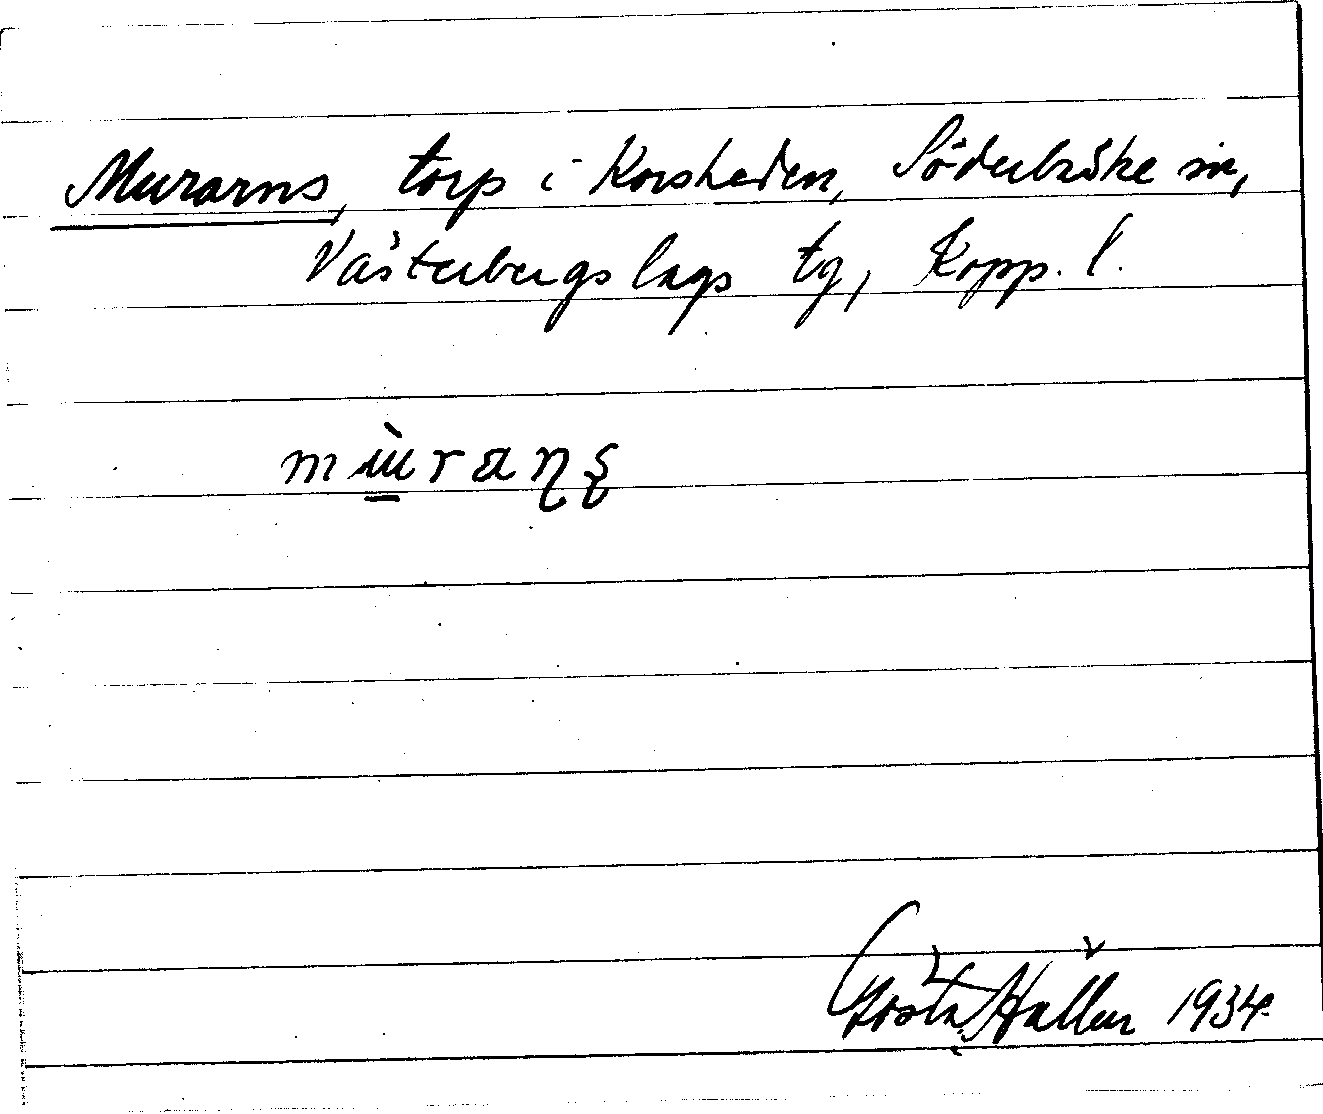 Murarns, torp i Korsheden, Söderbärke sn,
Västerbergslags tg, Kopp. l.
mɯ̱̀raɳʂ
Gösta Hallén 1934